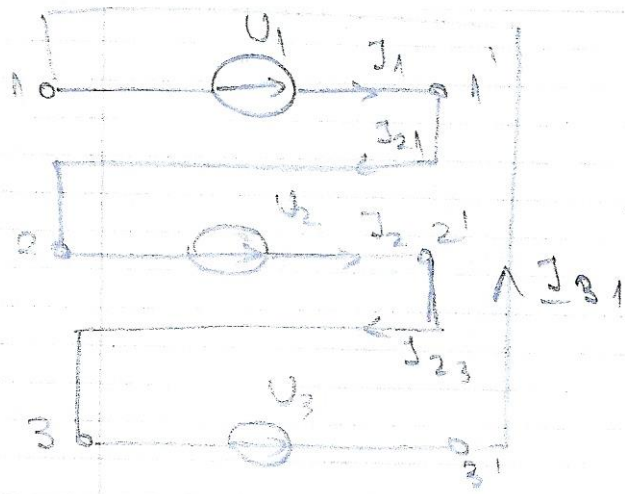 U1
1 J1 1'
J21
U2
2 J2 2'
J31
J23
U3
3 3'